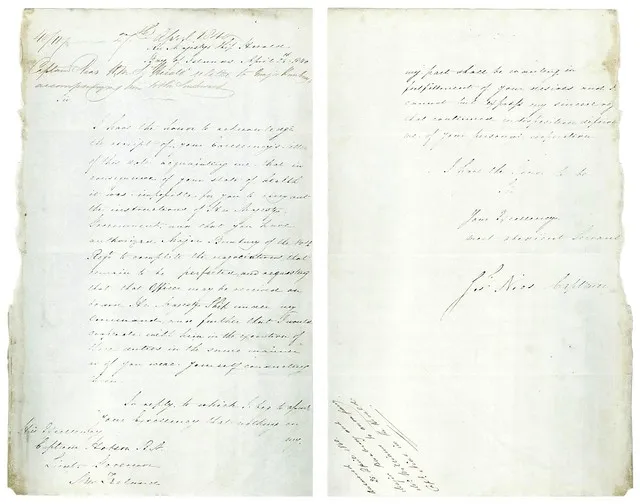 Her Majestys Ship Herald
Bay of Islands April 1840
Captain Nias H.M.S. Herald relative to Major Bunbury
accompanying him to the Southward
Sir
I have the honor to acknowledge
the receipt of your Excellency's letter
of this date acquainting me that in
consequence of your state of health
it was impossible for you to carry out
the instructions of Her Majesty's
Government, and that you have
authorized Major Bunbury of the 80th
Regt to complete the negociations that
remain to be perfected and requesting
that that Officer may be received on
board Her Majestys Ship under my
Command, and further that I would
cooperate with him in the execution of
these duties in the same manner
as if you were yourself conducting
them
In reply to which I beg to assure
Your Excellency that nothing on
my
His Excellency
Captain Hobson R.N.
Lieut Governor
New Zealand
my part shall be wanting in
fulfillment of your desires and I
cannot but express my sincere regret
that continued indisposition deprives
me of your personal cooperation
I have the honor to be
Sir
Your Excellency's
most obedient Servant
Josh Nias Captain